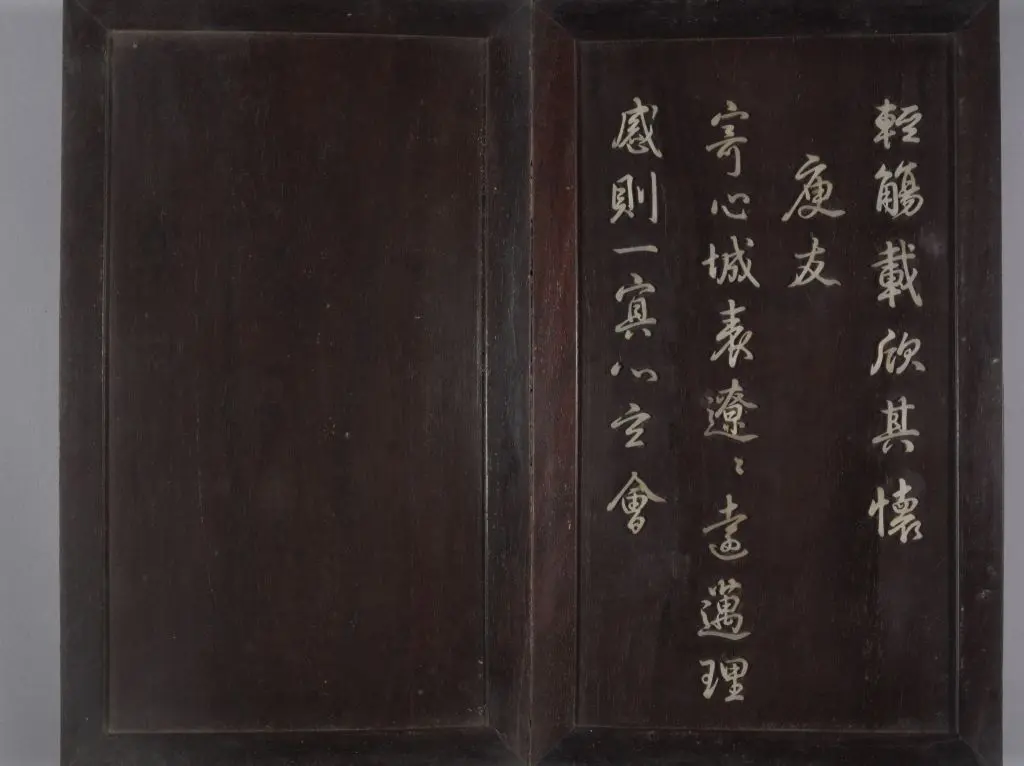 輕觴載欣其懷
庾友
寄心城表遼〻遠邁理
感則一冥心玄會